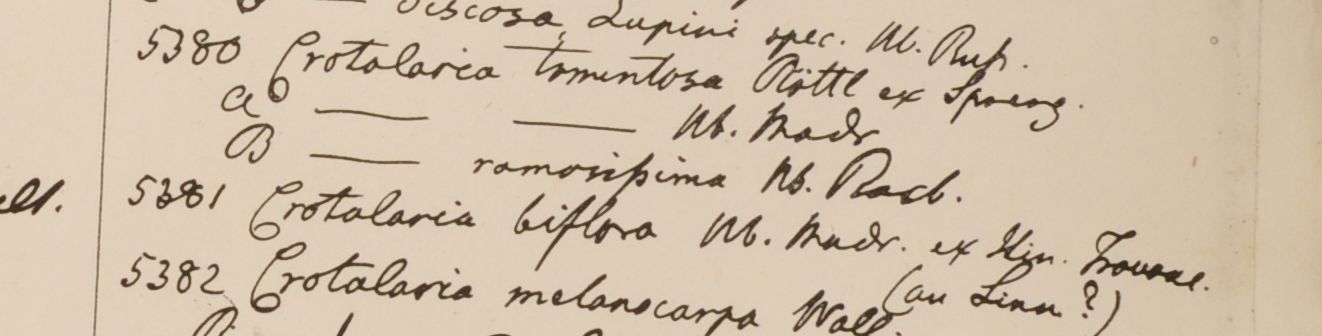 viscosa, Lupini spec. Hb. Ruß.
5380 Crotalaria tomentosa Röttl ex Spreng.
a — — Hb. Madr
B — ramosißima Hb. Roxb.
ell. 5381 Crotalaria biflora Hb. Madr. ex Hin. Travanc.
(an Linn?)
5382 Crotalaria melanocarpa Wall.